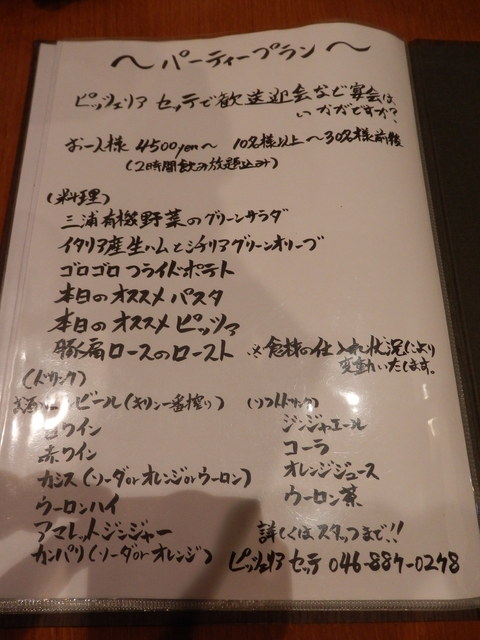 〜パーティープラン〜
ピッツェリア セッテで歓送迎会など宴会は、
いかがですか?
お一人様 4500yen〜 10名様以上〜30名様前後
(2時間飲み放題込み)
(料理)
三浦有機野菜のグリーンサラダ
イタリア産生ハムとシチリアグリーンオリーブ
ゴロゴロフライドポテト
本日のオススメパスタ
本日のオススメピッツァ
豚肩ロースのロースト ※食材の仕入れ状況により
変動いたします。
(ドリンク)
ビール(キリン一番搾り)
白ワイン
赤ワイン
カシス(ソーダorオレンジorウーロン)
ウーロンハイ
アマレットジンジャー
カンパリ(ソーダorオレンジ)
(ソフトドリンク)
ジンジャエール
コーラ
オレンジジュース
ウーロン茶
詳しくはスタッフまで!!
ピッツェリア セッテ 046-887-0278